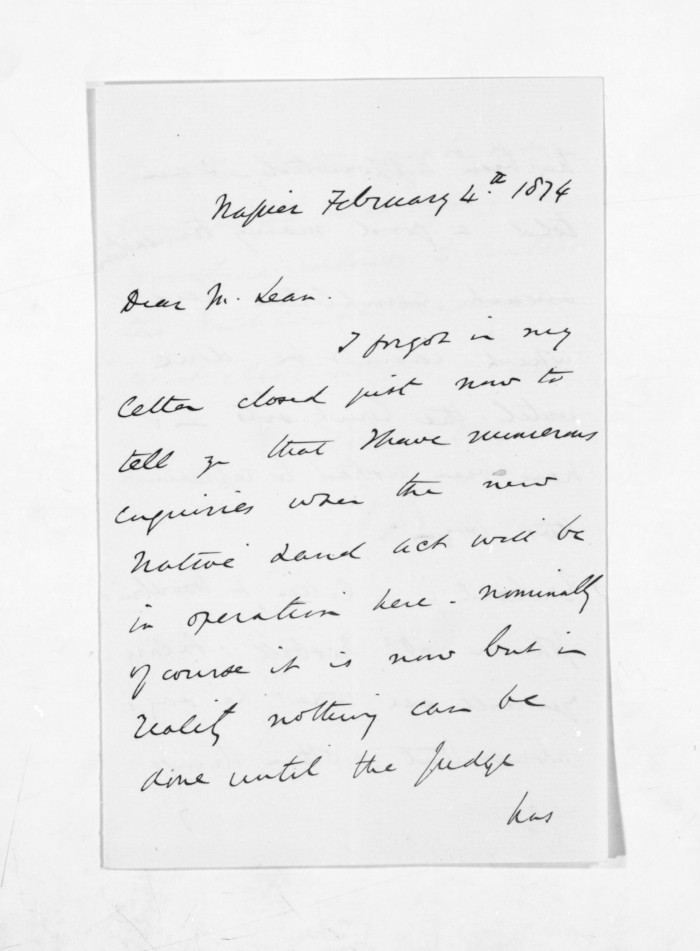 Napier February 4th 1874
Dear Mr. Lean.
I forgot in my
letter closed just now to
tell yr that I have numerous
enquiries when the new
Native Land Act will be
in operation here - nominally
of course it is now but in
reality nothing can be
done until the Judge
has